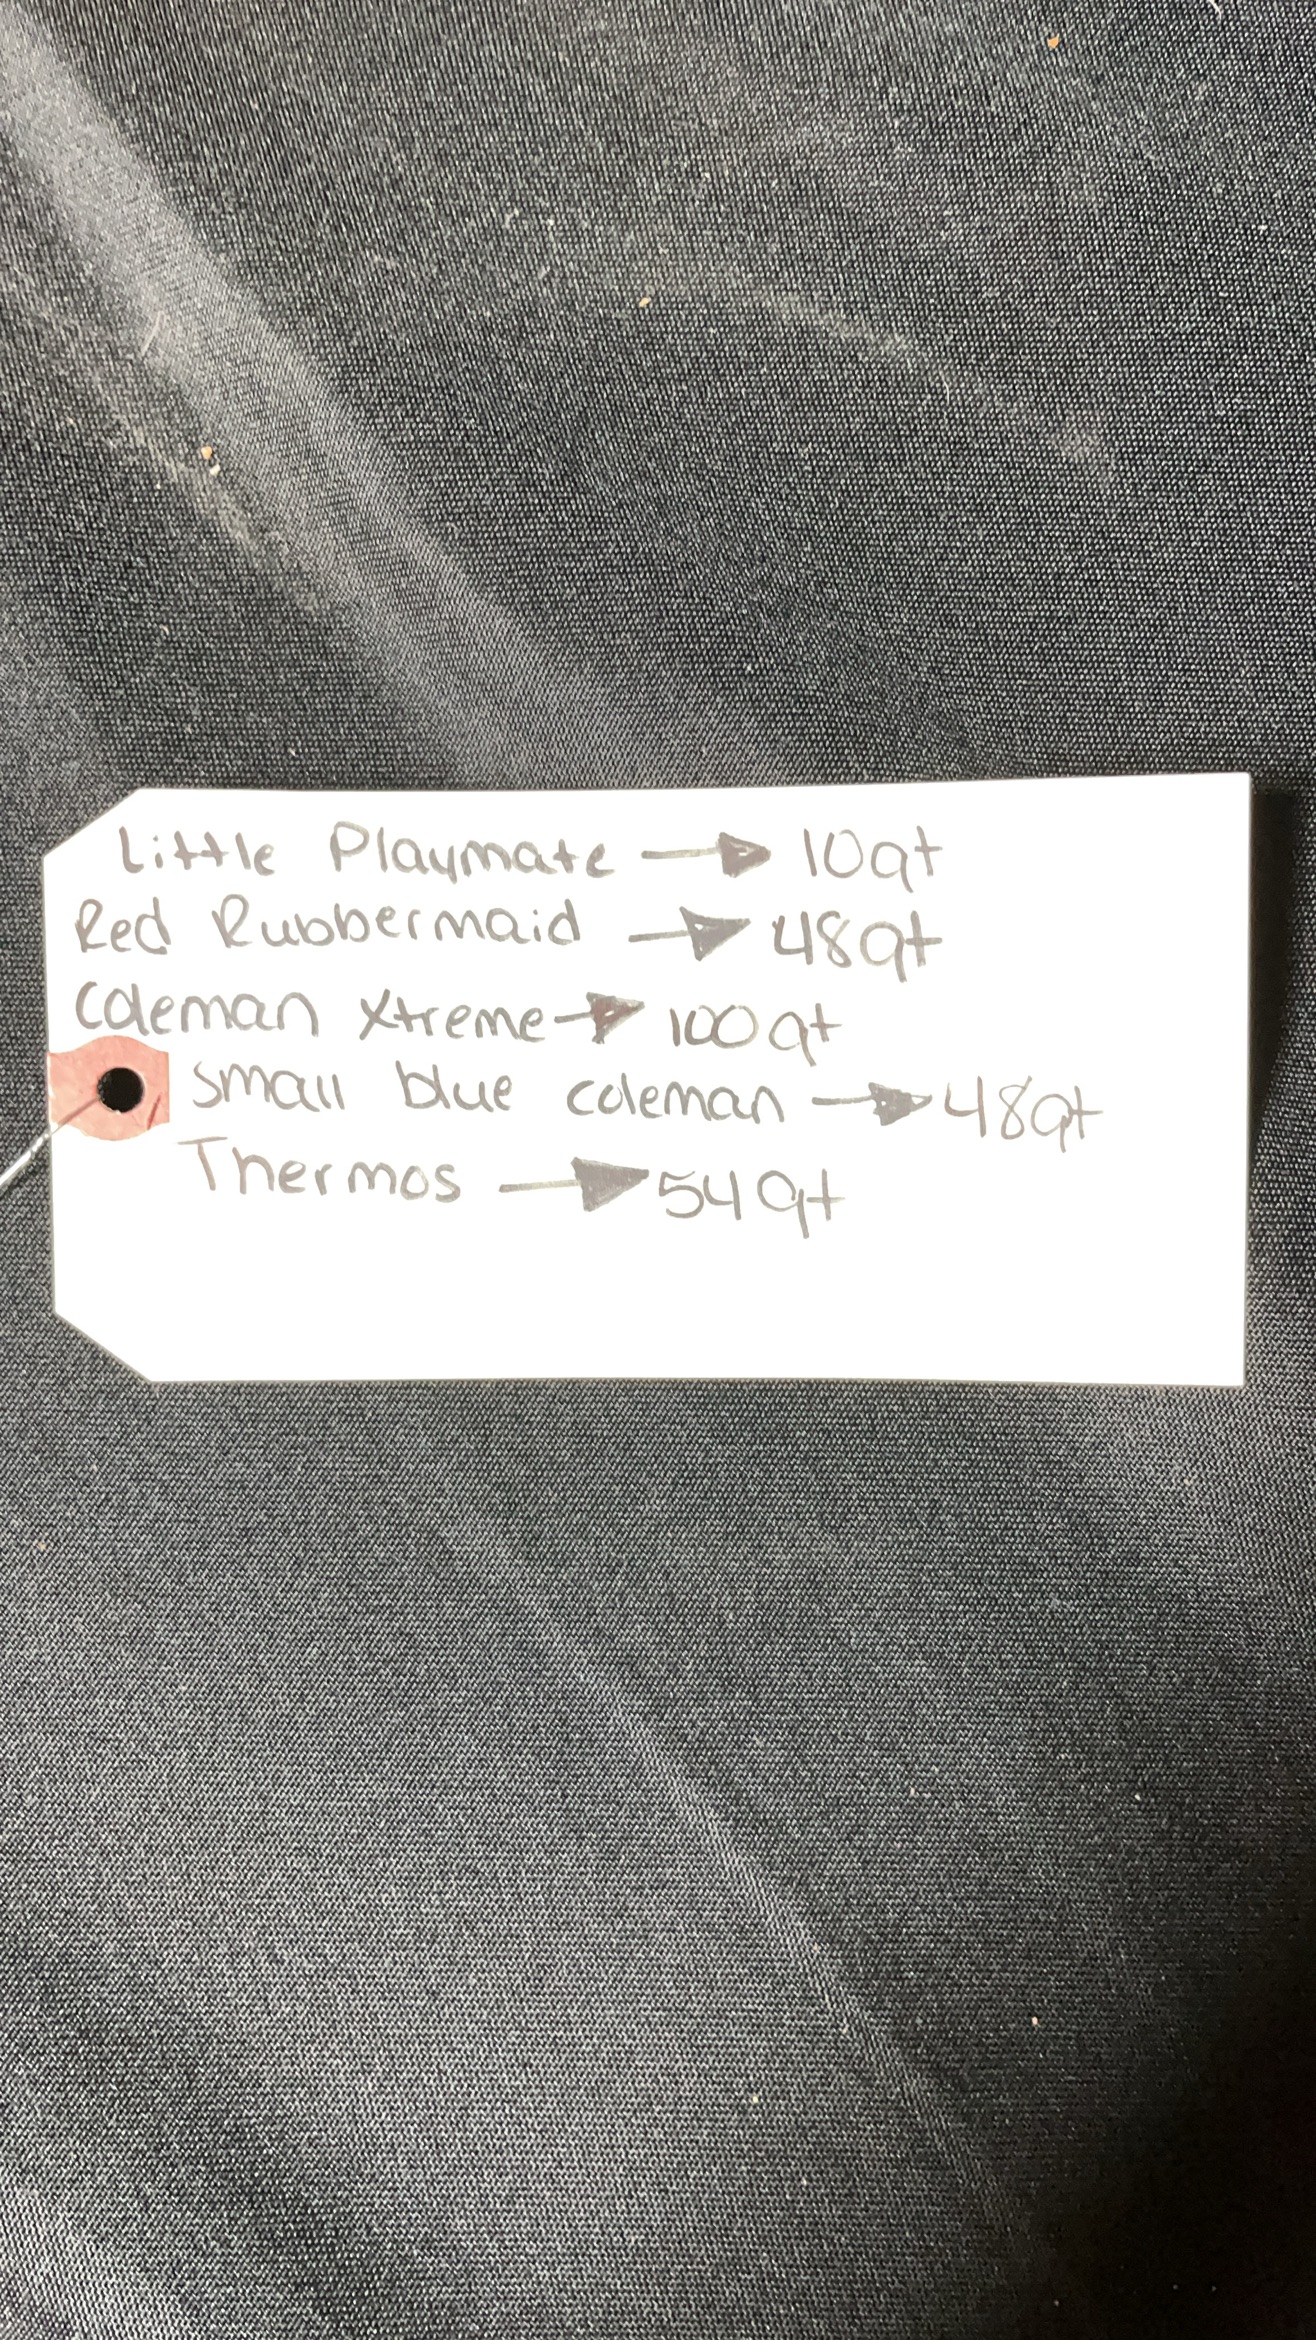 Little Playmate → 10qt
Red Rubbermaid → 48qt
Coleman Xtreme → 100qt
small blue coleman → 48qt
Thermos → 54qt